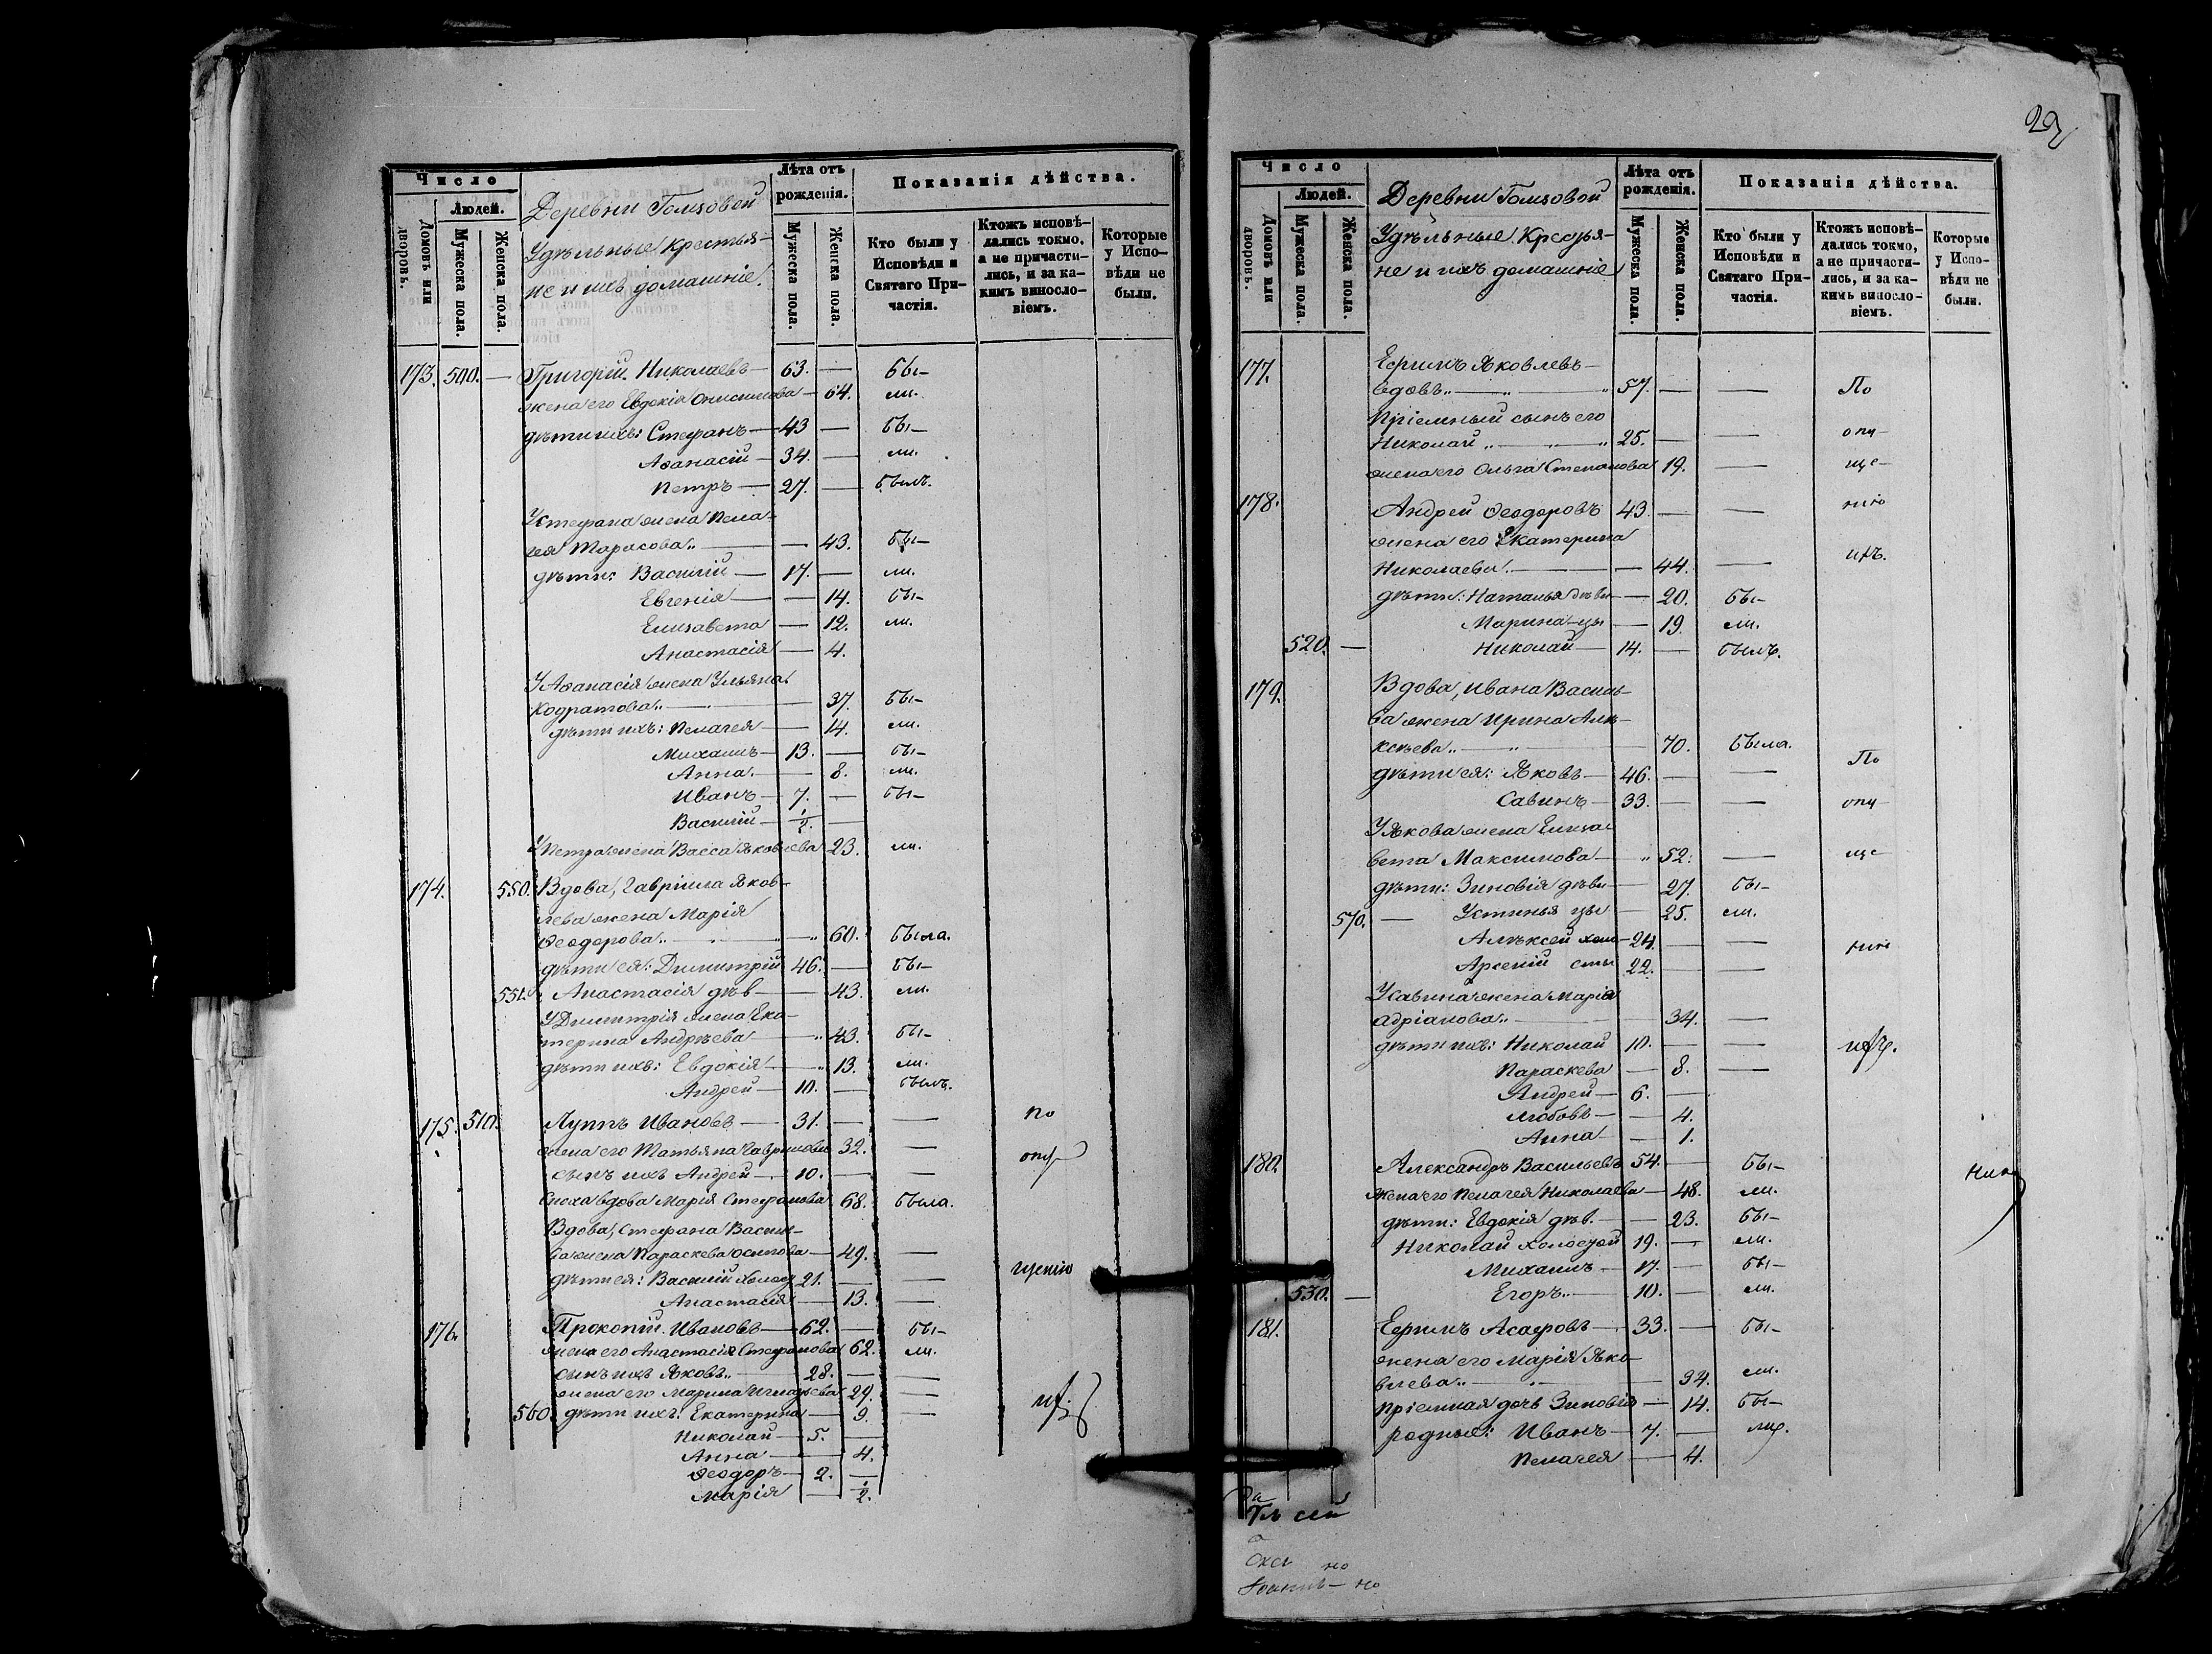 Число
Людей.
Домовъ или дворовъ.
Мужеска пола.
Женска пола.
Деревни Гомзовой
Удѣльные крестья-
не и ихъ домашніе.
Лѣта отъ рожденія.
Мужеска пола.
Женска пола.
Показанія дѣйства.
Кто были у Исповѣди и Святаго При-частія.
Ктожъ исповѣ-дались токмо, а не причасти-лись, и за ка-кимъ винословіемъ.
Которые у Испо-вѣди не были.
173. 500. — Григорій Николаевъ — 63. — бы-
жена его Евдокія Онисимова — 64. ли.
дѣти ихъ: Стефанъ — 43 — бы-
Аѳанасій — 34. — ли.
Петръ — 27. — былъ.
У Стефана жена Пела-
гея Тарасова — 43. бы-
дѣти: Василій — 17. — ли.
Евгенія — — 14. бы-
Елизавета — 12. ли.
Анастасія — 4.
У Аѳанасія жена Ульяна
Кодратова — 37. бы-
дѣти ихъ: Пелагея — 14. ли.
Михаилъ — 13. — бы-
Анна — 8. ли.
Иванъ — 7. — бы-
Василій — 1/2. —
У Петра жена Васса Яковлева 23. ли.
174. 550. Вдова, Гавріила Яков-
лева жена Марія
Ѳеодорова — 60. была.
дѣти ея: Димитрій 46. — бы-
551. Анастасія дѣв — 43. ли.
У Димитрія жена Ека-
терина Андреева — 43. бы-
дѣти ихъ: Евдокія — 13. ли.
Андрей — 10. — былъ.
175. 510. Луппъ Ивановъ — 31. — — По
жена его Татьяна Гавриилова 32. — опу-
сынъ ихъ Андрей — 10. — —
Сноха вдова Марія Стефанова 68. была.
Вдова, Стефана Василь-
ва жена Параскева Осипова — 49. —
дѣти ея: Василій холост 21. — — щенію
Анастасія — 13. —
176. Прокопій Ивановъ — 62. — бы-
жена его Анастасія Стефанова 62. ли.
сынъ ихъ Яковъ — 28. — —
жена его Марина Игнатьева 29. —
560. дѣти ихъ: Екатерина — 9. — ихъ.
Николай — 5. —
Анна — 4.
Ѳеодоръ — 2. —
Марія — 1/2.
29
Число
Людей.
Домовъ или дворовъ.
Мужеска пола.
Женска пола.
Деревни Гомзовой
Удѣльные Крестья-
не и ихъ домашніе
Лѣта отъ рожденія.
Мужеска пола.
Женска пола.
Показанія дѣйства.
Кто были у Исповѣди и Святаго При-частія.
Ктожъ исповѣ-дались токмо, а не причасти-лись, и за ка-кимъ винословіемъ.
Которые у Испо-вѣди не были.
177. Ефимъ Яковлевъ —
вдовъ — 57. — — По
Пріемный сынъ его
Николай — 25. — — опу-
жена его Ольга Степанова 19. — ще-
178. Андрей Ѳеодоровъ 43. — — нію
жена его Екатерина
Николаева — 44. — ихъ.
дѣти: Наталья дѣви — 20. бы-
Марина цы — 19. ли.
520. — Николай — 14. — былъ.
179. Вдова, Ивана Василь-
ва жена Ирина Але-
ксѣева — 70. была.
дѣти ея: Яковъ — 46. — — По
Савинъ — 33. — — опу-
У Якова жена Елиза-
вета Максимова — 52. — ще-
дѣти: Зиновія дѣви — 27. бы-
570. — Устинья цы — 25. ли.
Алексѣй холо- 24. — — нію
Арсеній сты 22. — —
У Савина жена Марія
Адріанова — 34. —
дѣти ихъ: Николай 10. — — ихъ.
Параскева — 8. —
Андрей — 6. —
Любовь — 4.
Анна — 1.
180. Александръ Васильевъ 54. — бы-
жена его Пелагея Николаева — 48. ли.
дѣти: Евдокія дѣв. — 23. бы-
Николай холостой 19. — ли.
Михаилъ — 17. — бы-
530. — Егоръ — 10. — ли.
181. Ефимъ Асафовъ — 33. — бы-
жена его Марія Яко-
влева — 34. ли.
пріемная дочь Зиновія — 14. бы-
родные: Иванъ — 7. — ли.
Пелагея — 4.